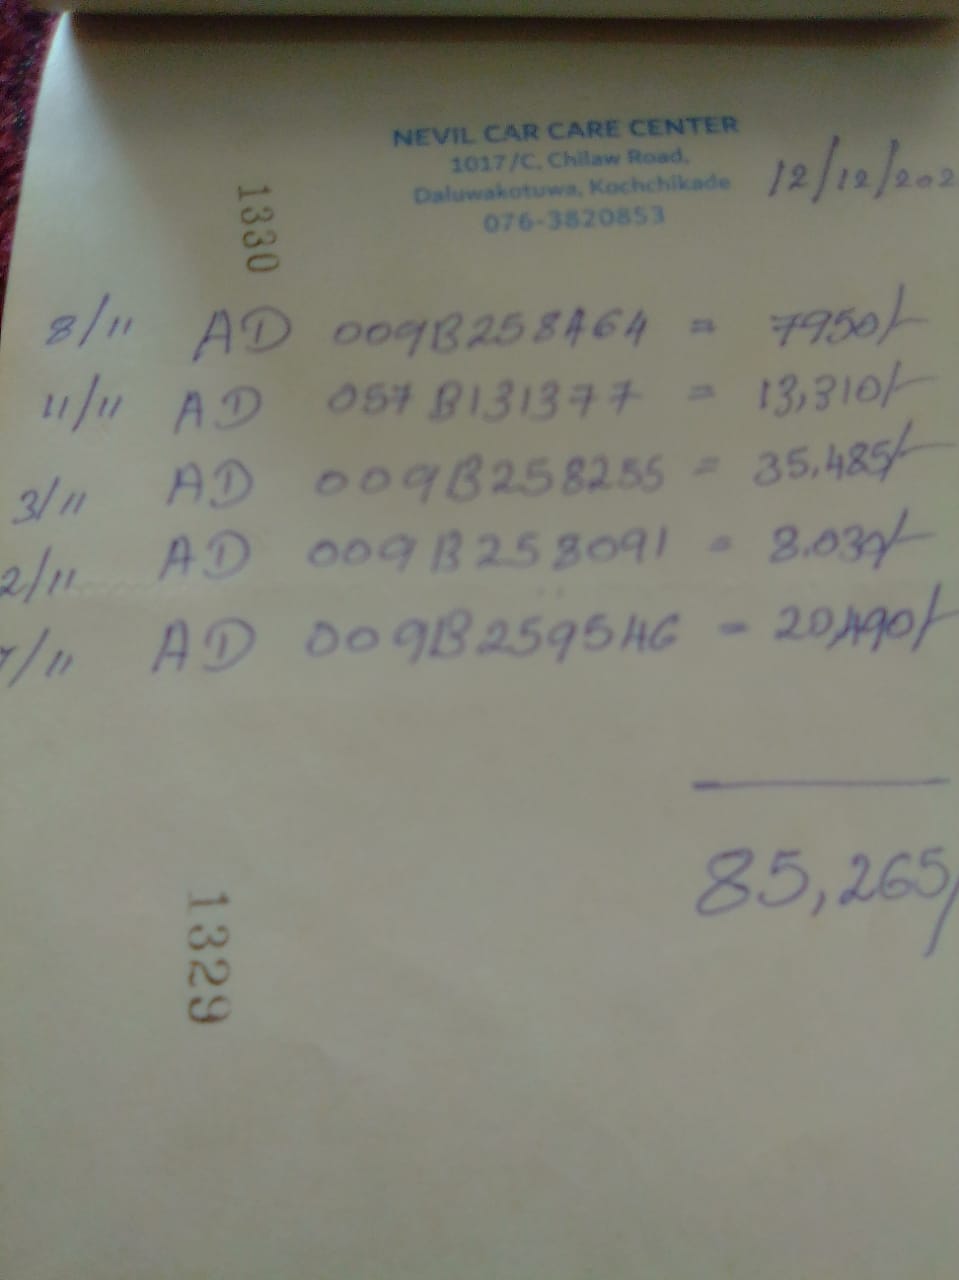 NEVIL CAR CARE CENTER
1017/C, Chilaw Road,
Daluwakotuwa, Kochchikade
076-3820853
12/12/202
1330
8/11 AD 009B258464 = 7950/-
11/11 AD 057B131377 = 13,310/-
3/11 AD 009B258255 = 35,485/-
2/11 AD 009B258091 = 8.030/-
7/11 AD 009B259546 = 20,490/-
85,265/
1329